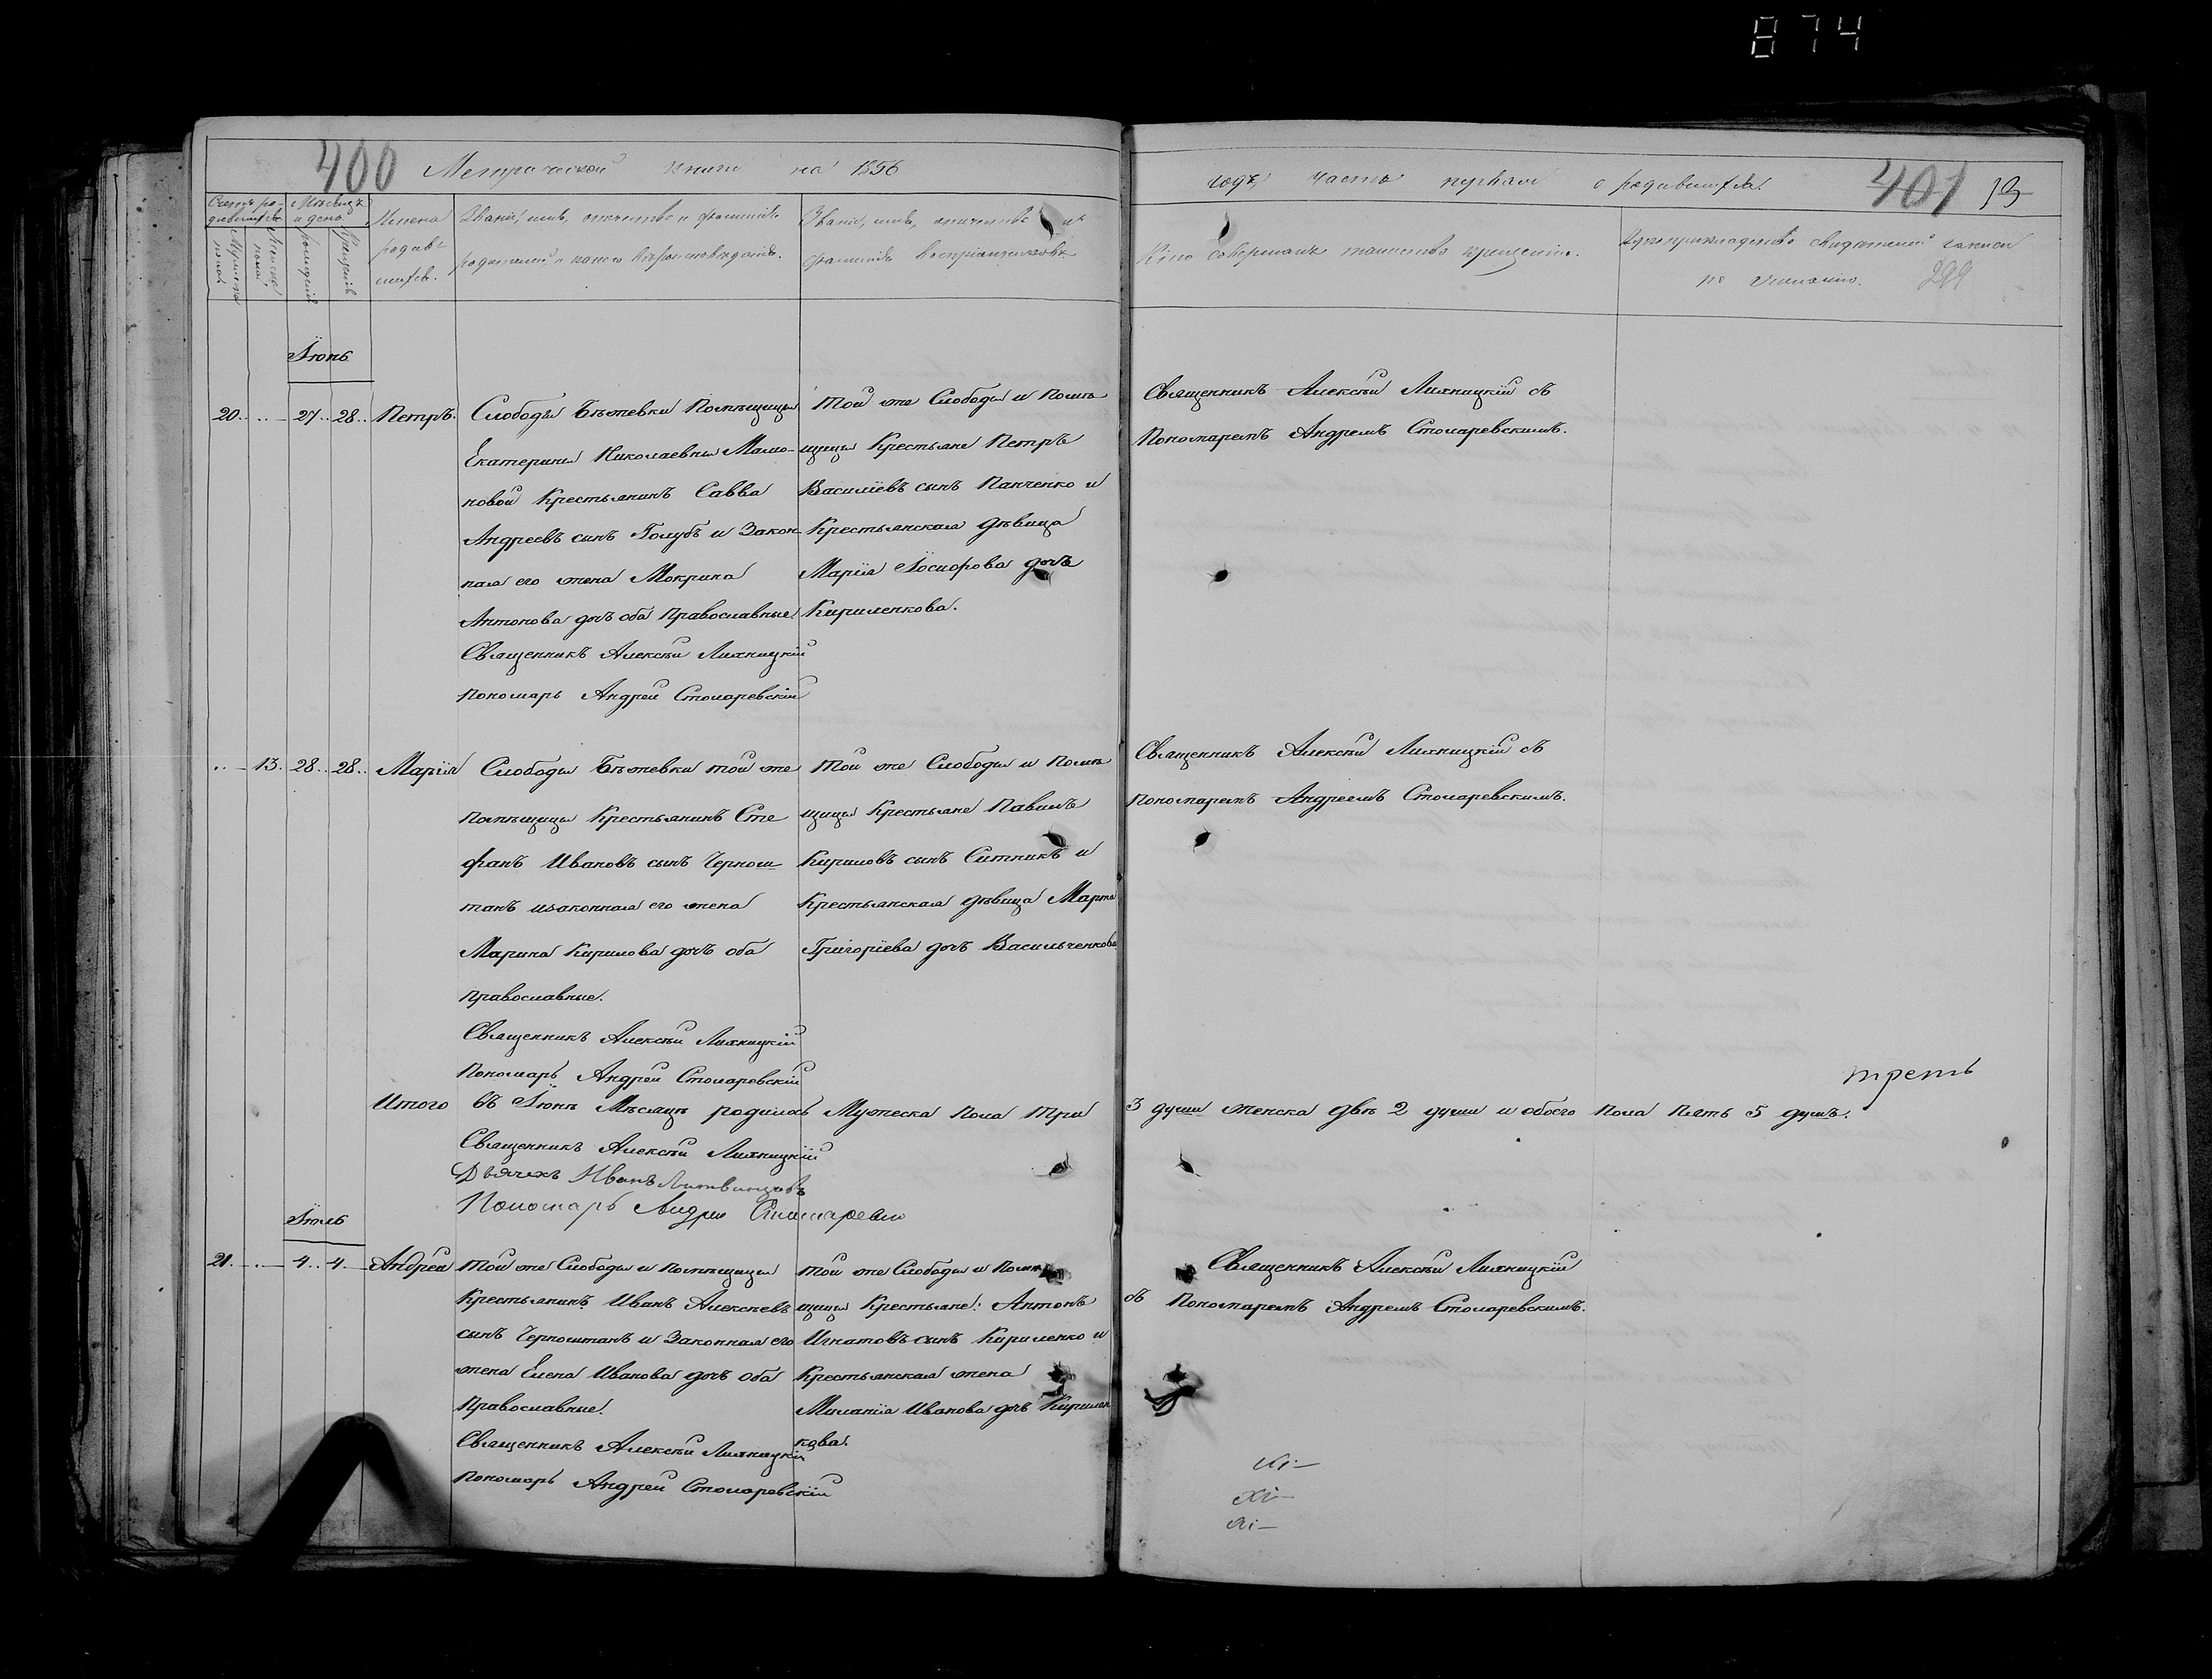 874
400 Метрической книги на 1856
годъ, часть первая о родившихся. 401 13
Счетъ ро-
дившихся
Мѣсяцъ
и день
Мужеска
пола
Женска
пола
рожденія
крещенія
Имена
родив-
шихся.
Званіе, имя, отчество и фамилія
родителей и какого вѣроисповѣданія.
Званіе, имя, отчество и
фамилія воспріемниковъ
Кто совершалъ таинство крещенія.
Рукоприкладство свидѣтелей записи
по желанію. 299
Іюнь
20. 27 28 Петръ.
Слободы Бѣжевки Помѣщицы
Екатерины Николаевны Мало-
новой Крестьянинъ Савва
Андреевъ сынъ Голубъ и Закон
ная его жена Мокрина
Антонова дочь оба Православные.
Священникъ Алексѣй Лихницкій
Пономарь Андрей Столяревскій
той же Слободы и Помѣ
щицы Крестьяне Петръ
Василіевъ сынъ Панченко и
Крестьянская дѣвица
Марія Іосифова дочь
Кириленкова.
Священникъ Алексѣй Лихницкій съ
Пономаремъ Андреемъ Столяревскимъ.
13. 28 28 Марія
Слободы Бѣжевки той же
Помѣщицы Крестьянинъ Сте
фанъ Ивановъ сынъ Чернош-
танъ изаконная его жена
Марина Кирилова дочь оба
православные.
Священникъ Алексѣй Лихницкій
Пономарь Андрей Столяревскій
той же Слободы и Помѣ
щицы Крестьяне Павелъ
Кириловъ сынъ Ситникъ и
Крестьянская дѣвица Марта
Григоріева дочь Васильченкова
Священникъ Алексѣй Лихницкій съ
Пономаремъ Андреемъ Столяревскимъ.
треть
Итого въ Іюнѣ Мѣсяцѣ родилось Мужеска Пола три 3 души женска двѣ 2 души и обоего Пола пять 5 душъ.
Священникъ Алексѣй Лихницкій
Дьячекъ Иванъ Литвинцовъ
Пономарь Андрей Столяревскій
Іюль
21. 4 4 Андрей
той же Слободы и Помѣщицы
Крестьянинъ Иванъ Алексѣевъ
сынъ Черноштанъ и Законная его
жена Елена Иванова дочь оба
Православные.
Священникъ Алексѣй Лихницкій
Пономарь Андрей Столяревскій
той же Слободы и Помѣ
щицы Крестьяне: Антонъ
Игнатовъ сынъ Кириленко и
Крестьянская жена
Миланія Иванова дочь Кирилен
кова.
Священникъ Алексѣй Лихницкій
съ Пономаремъ Андреемъ Столяревскимъ.